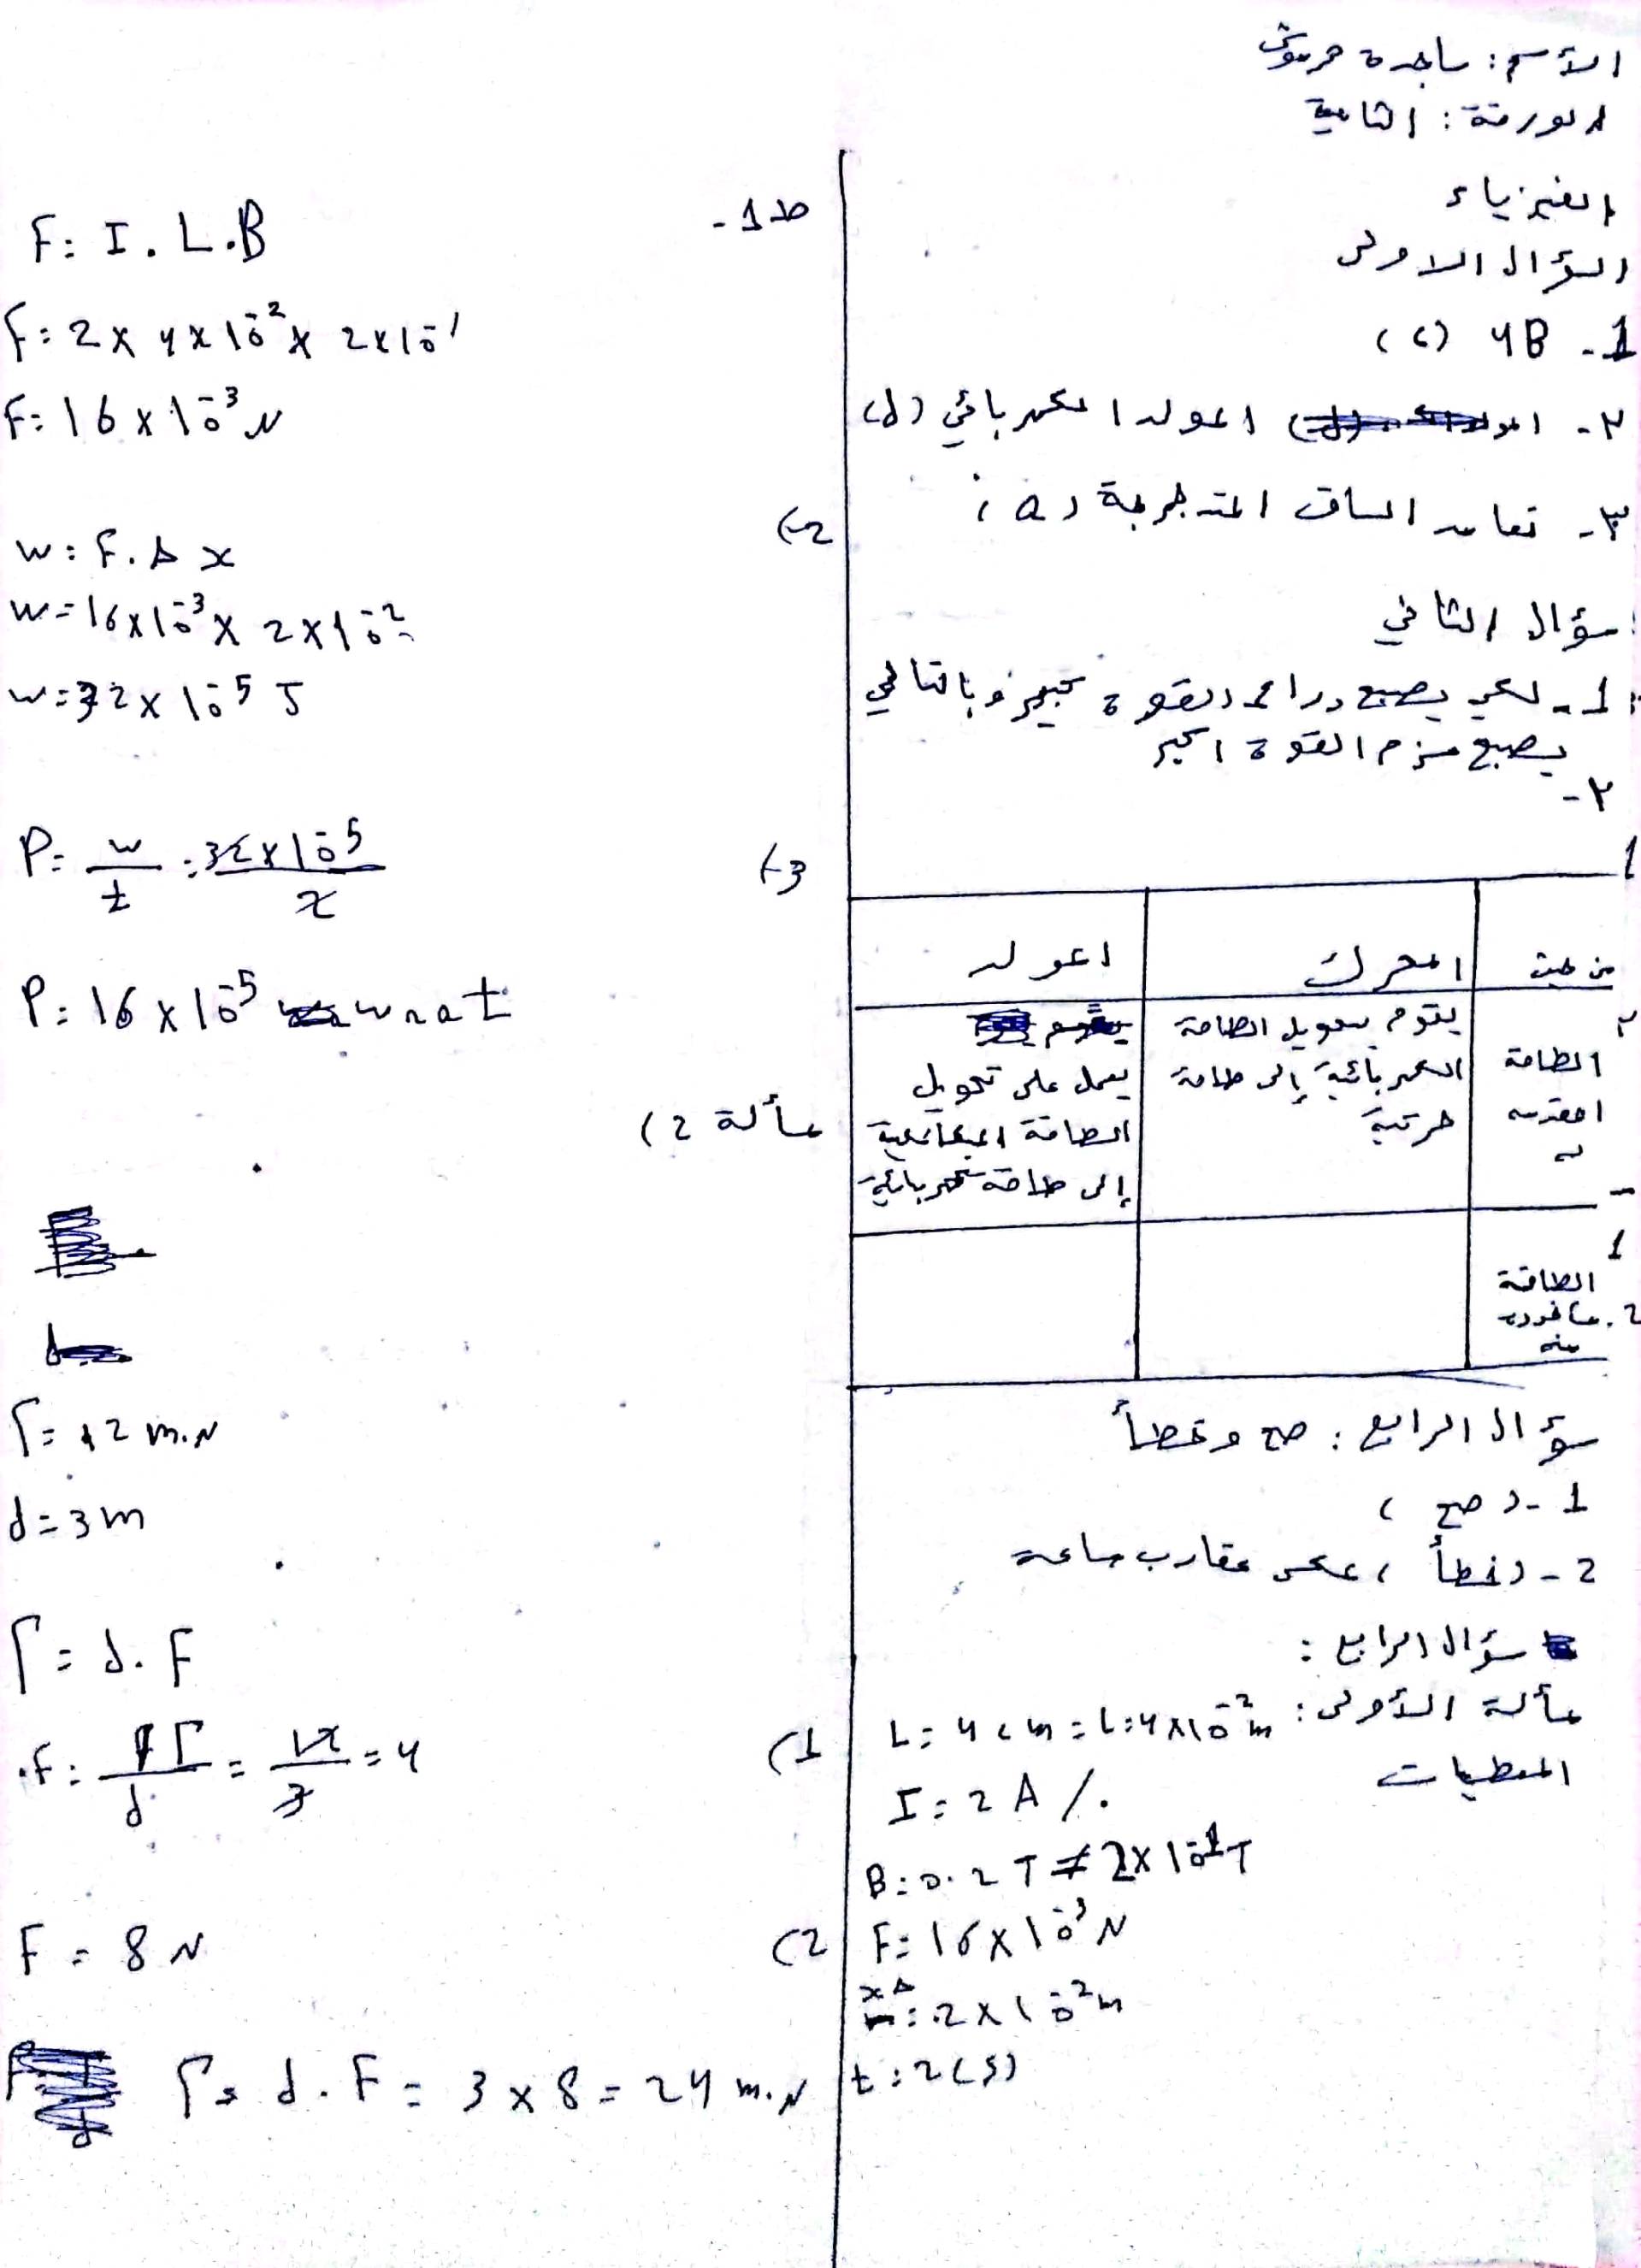 الأسم: ساجدة حربوش
الورقة: الثانية
الفيزياء
السؤال الاولى
1- 4B (c)
٢- المولد الكهربائي (d)
٣- تعامد الساق المتدحرجة (a)
سؤال الثاني
1- لكي يصبح دراع القوة كبير وبالتالي
يصبح عزم القوة اكبر
٢-
من حيث
المحرك
المولد
الطاقة
المقدمة
له
يقوم بتحويل الطاقة
الكهربائية إلى طاقة
حركية
يعمل على تحويل
الطاقة الميكانيكية
إلى طاقة كهربائية
الطاقة
مأخوذة
منه
سؤال الرابع: صح وخطأ
1- (صح)
2- (خطأ) عكس عقارب ساعة
سؤال الرابع:
مسألة الأولى: L: 4cm = L: 4×10⁻²m
المعطيات
I = 2A
B: 0.2T = 2×10⁻¹T
F: 16×10⁻³N
Δx: 2×10⁻²m
t: 2(s)
ط1-
F: I.L.B
F: 2×4×10⁻²×2×10⁻¹
F: 16×10⁻³N
2)
W: F.Δx
W=16×10⁻³×2×10⁻²
W=32×10⁻⁵J
3)
P= w/t : 32×10⁻⁵/2
P: 16×10⁻⁵ wat
مسألة 2)
Γ= 12 m.N
d=3m
Γ= d.F
1) F: Γ/d = 12/3 = 4
2) F = 8N
Γ= d.F = 3×8 = 24 m.N